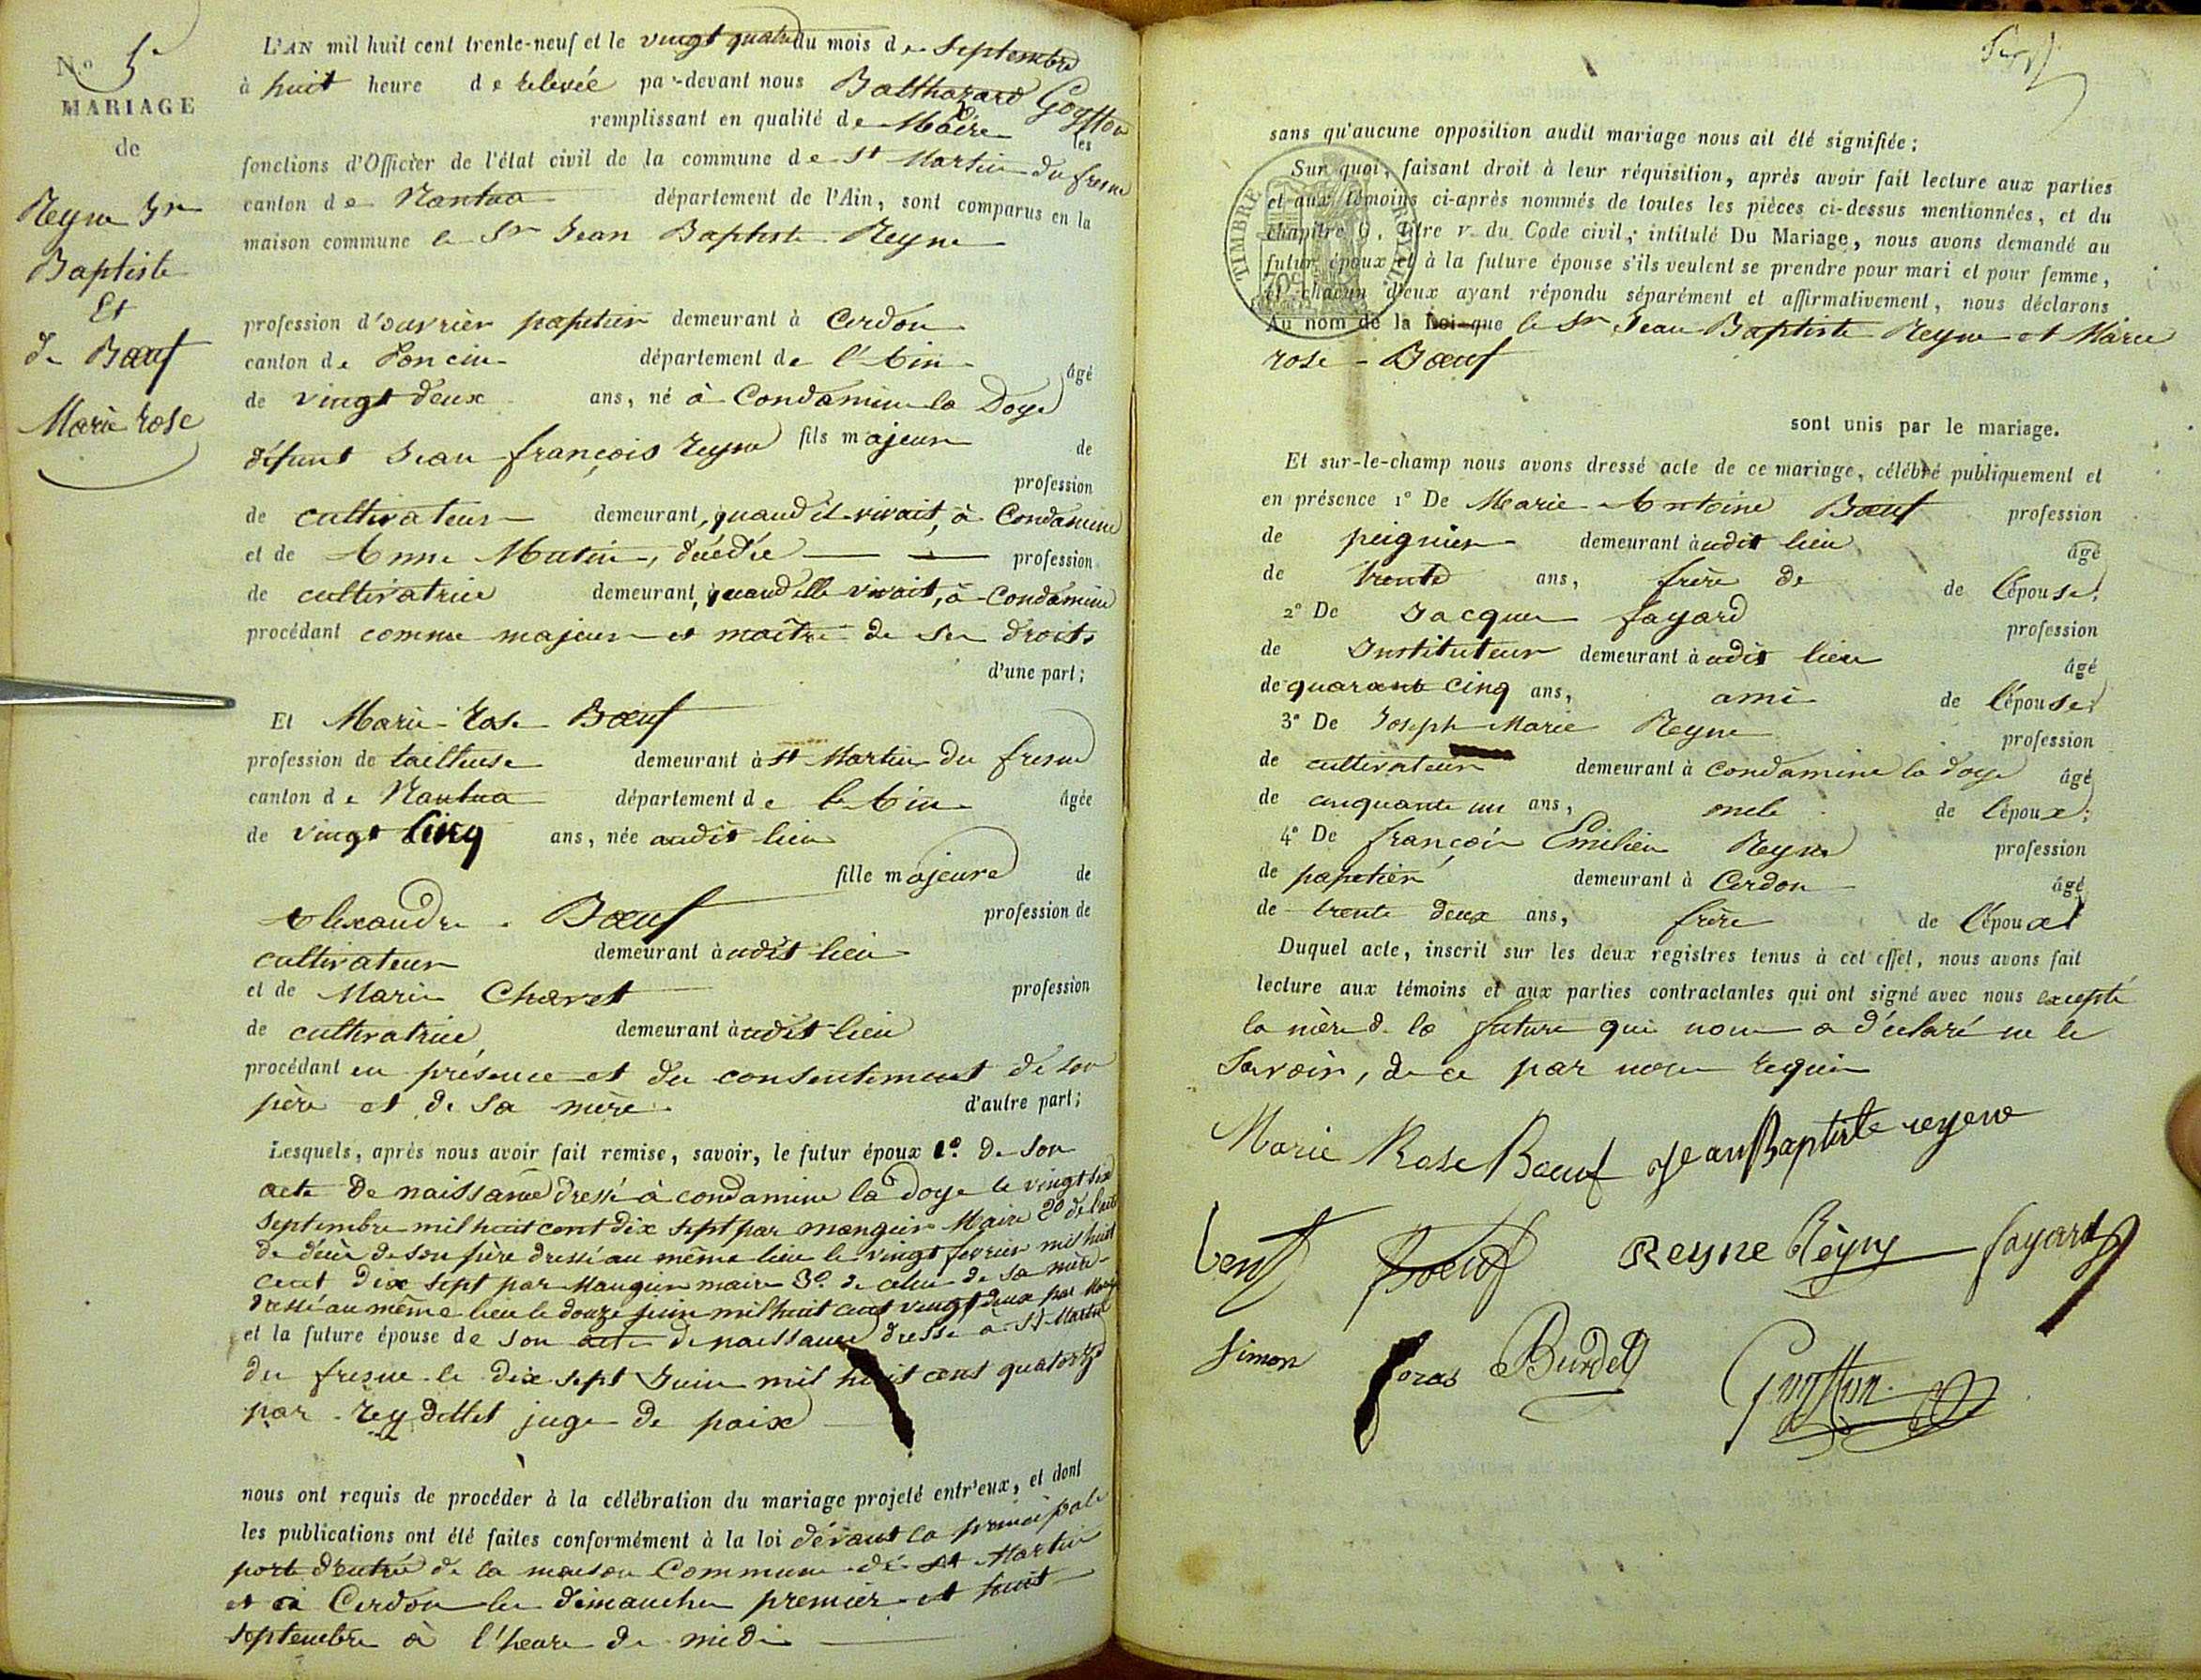 N° 5e
MARIAGE
de
Reyne Jn
Baptiste
Et
de Bœuf
Marie rose
L'AN mil huit cent trente-neuf et le vingt quatre du mois de Septembre
à huit heure de relevée par-devant nous Balthazard Goytton
remplissant en qualité de Maire les
fonctions d'Officier de l'état civil de la commune de St Martin du fresne
canton de Nantua département de l'Ain, sont comparus en la
maison commune le Sr Jean Baptiste Reyne
profession d'ouvrier papetier demeurant à Cerdon
canton de Poncin département de l'Ain âgé
de vingt deux ans, né à Condamine la Doye
fils majeur de
défunt Jean françois reyne profession
de cultivateur demeurant, quand il vivait, à Condamine
et de Anne Mutin, décédée profession
de cultivatrice demeurant, quand elle vivait, à Condamine
procédant comme majeur et maître de ses droits
d'une part;
Et Marie Rose Bœuf
profession de tailleuse demeurant à St Martin du fresne
canton de Nantua département de l'Ain âgée
de vingt cinq ans, née audit lieu
fille majeure de
Alexandre Bœuf profession de
cultivateur demeurant audit lieu
et de Marie Charvet profession
de cultivatrice demeurant audit lieu
procédant en présence et du consentement de son
père et de sa mère d'autre part;
Lesquels, après nous avoir fait remise, savoir, le futur époux 1° de son
acte de naissance dressé à condamine la doye le vingt six
septembre mil huit cent dix sept par mangier Maire 2° de l'acte
de décès de son père dressé au même lieu le vingt fevrier mil huit
cent dix sept par Maugier maire 3° de celui de sa mère
dressé au même lieu le douze juin mil huit cent vingt deux par
et la future épouse de son acte de naissance dressé à St Martin
du fresne le dix sept Juin mil huit cent quatorze
par reydellet juge de paix
nous ont requis de procéder à la célébration du mariage projeté entr'eux, et dont
les publications ont été faites conformément à la loi dévant la principale
porte d'entrée de la maison Commune de St Martin
et à Cerdon les dimanches premier et huit
septembre à l'heure de midi
sans qu'aucune opposition audit mariage nous ait été signifiée;
Sur quoi, faisant droit à leur réquisition, après avoir fait lecture aux parties
et aux témoins ci-après nommés de toutes les pièces ci-dessus mentionnées, et du
chapitre 6, titre v du Code civil, intitulé Du Mariage, nous avons demandé au
futur époux et à la future épouse s'ils veulent se prendre pour mari et pour femme,
et chacun d'eux ayant répondu séparément et affirmativement, nous déclarons
Au nom de la Loi que le Sr Jean Baptiste Reyne et Marie
rose Bœuf
sont unis par le mariage.
TIMBRE ROYAL
Et sur-le-champ nous avons dressé acte de ce mariage, célébré publiquement et
en présence 1° De Marie Antoine Bœuf profession
de peignier demeurant audit lieu âgé
de trente ans, frère de de l'épouse;
2° De Jacques fayard profession
de Instituteur demeurant audit lieu âgé
de quarante cinq ans, ami de l'épouse;
3° De Joseph Marie Reyne profession
de cultivateur demeurant à condamine la doye âgé
de cinquante un ans, oncle de l'époux;
4° De françois Emilien Reyne profession
de papetier demeurant à Cerdon âgé
de trente deux ans, frère de l'époux
Duquel acte, inscrit sur les deux registres tenus à cet effet, nous avons fait
lecture aux témoins et aux parties contractantes qui ont signé avec nous excepté
la mère de la future qui nous a déclaré ne le
Savoir, de ce par nous requis
Marie Rose Bœuf Jean Baptiste reyene
bœuf Reyne Rèyne fayard
Simon Burdet
Goytton